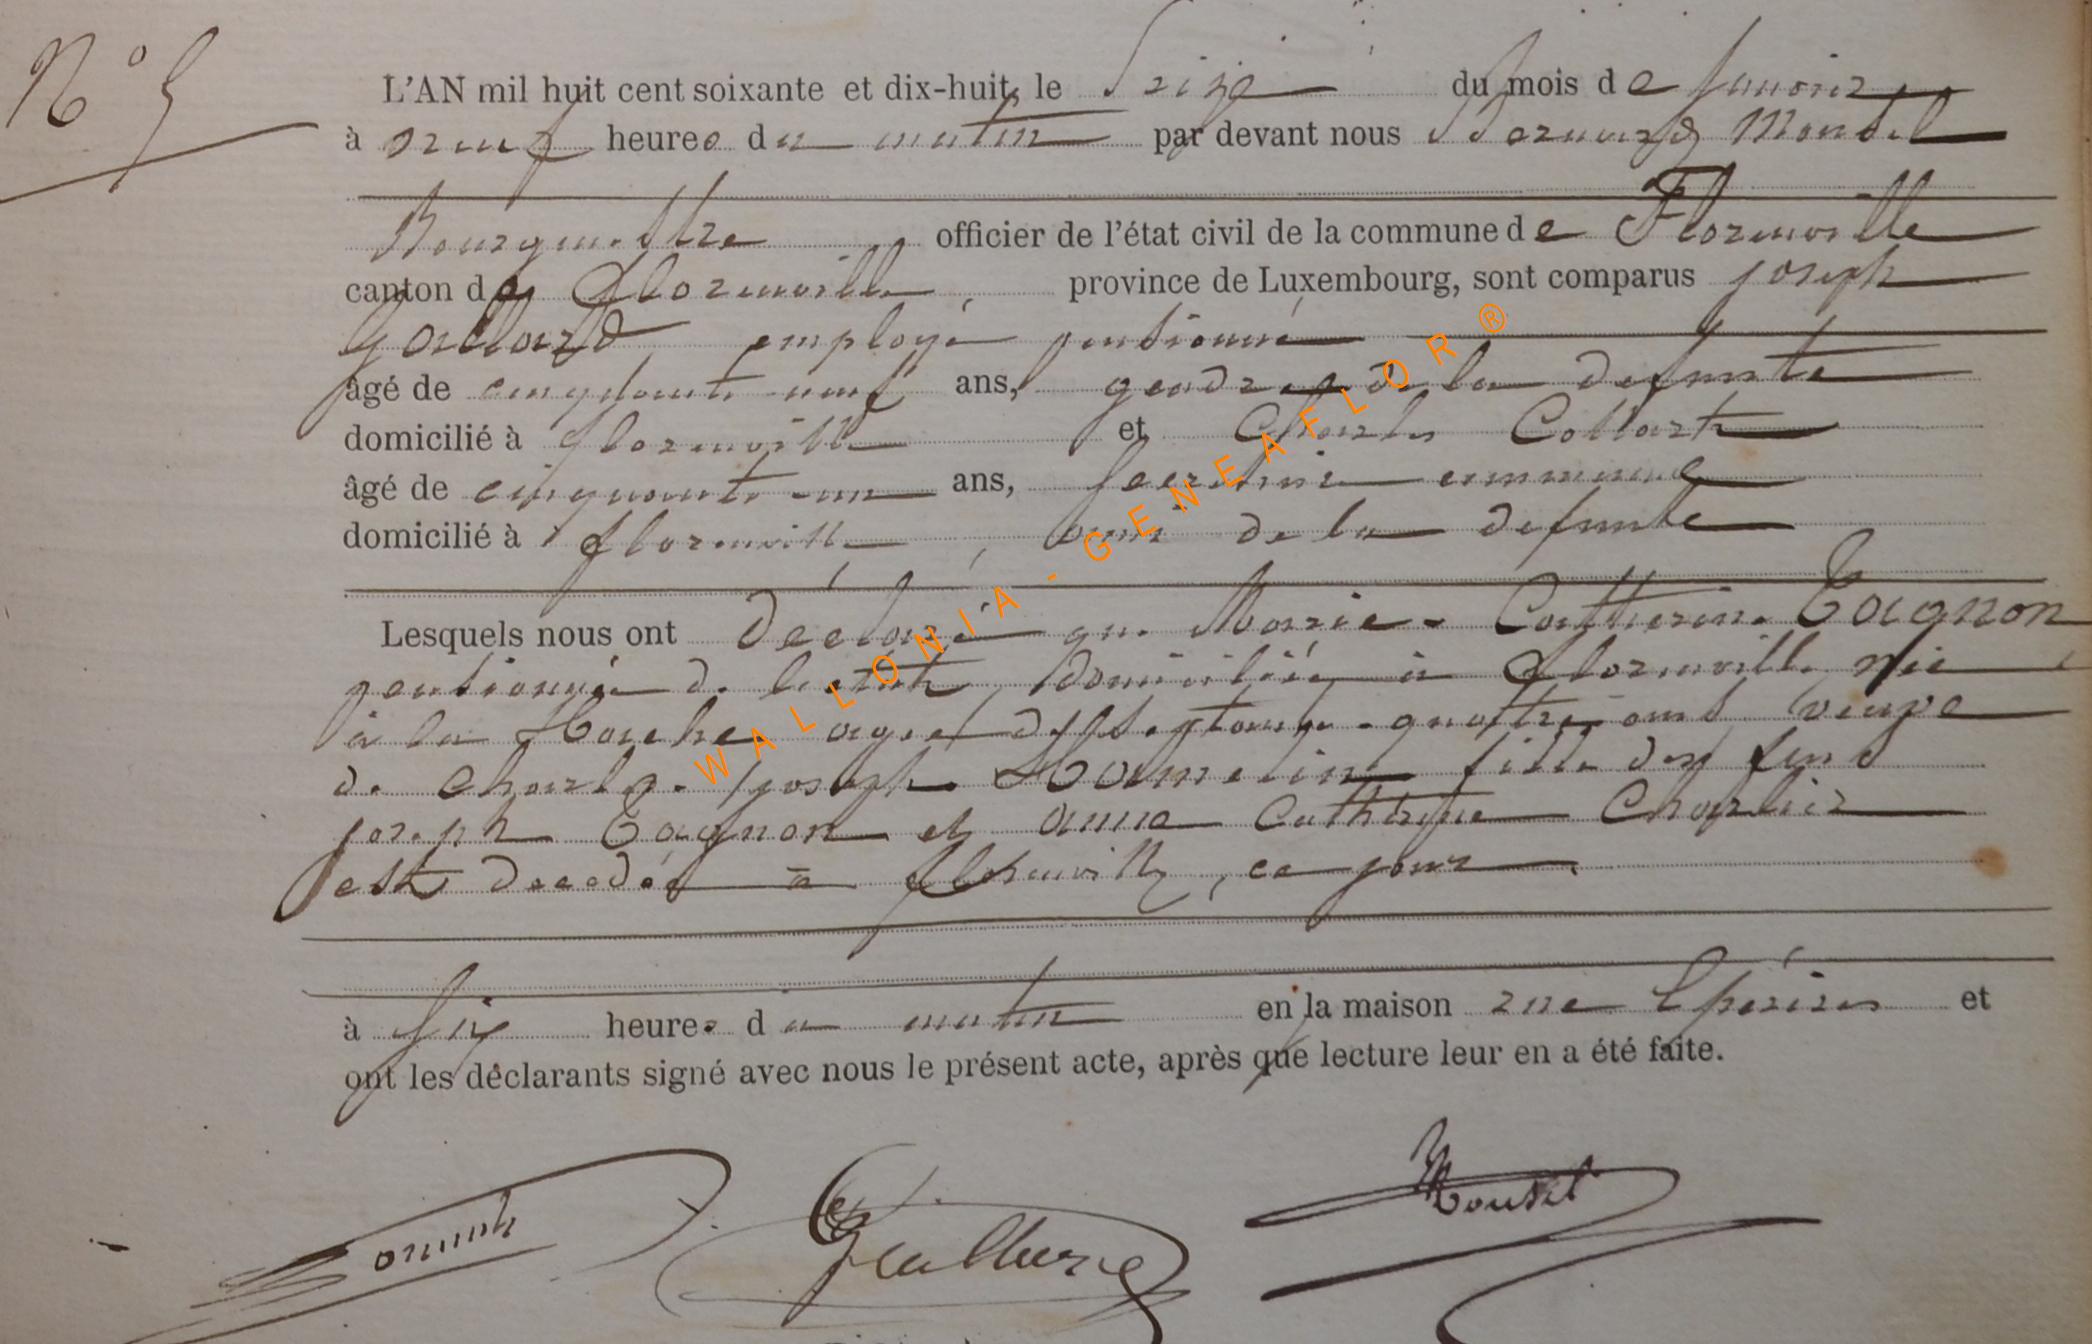 N° 5
L'AN mil huit cent soixante et dix-huit, le Seize du mois de Janvier
à neuf heures du matin par devant nous Bernard Mousel
Bourgmestre officier de l'état civil de la commune de Florenville
canton de Florenville, province de Luxembourg, sont comparus Joseph
Gaillard employé pentionné
âgé de cinquante neuf ans, gendre de la defunte
domicilié à florenville et Charles Collart
âgé de cinquante-un ans, Secretaire communal
domicilié à florenville, ami de la defunte
Lesquels nous ont déclaré que Marie-Catherine Tagnon
pentionnée de l'etat, domiciliée à florenville née
à la Roche agee de Septante-quattre ans veuve
de Charles-Joseph fille des feus
joseph Tagnon et anne Catherine Charlier
est decedée à florenville, ce jour
à Six heures du matin en la maison rue et
ont les déclarants signé avec nous le présent acte, après que lecture leur en a été faite.
Mousel
WALLONIA-GENEAFLOR®